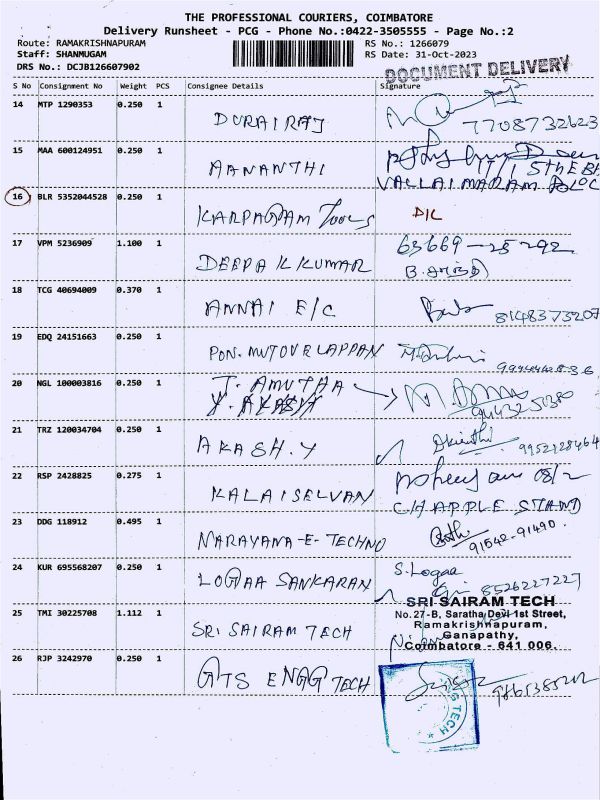 THE PROFESSIONAL COURIERS, COIMBATORE
Delivery Runsheet - PCG - Phone No.:0422-3505555 - Page No.:2
Route: RAMAKRISHNAPURAM
RS No.: 1266079
Staff: SHANMUGAM
RS Date: 31-Oct-2023
DRS No.: DCJB126607902
DOCUMENT DELIVERY
S No Consignment No Weight PCS Consignee Details Signature
14 MTP 1290353 0.250 1 DURAIRAJ
7708732623
15 MAA 600124951 0.250 1 AANANTHI
VALLAI MARAM
16 BLR 5352044528 0.250 1 KARPAGAM Tools D/L
17 VPM 5236909 1.100 1 DEEPAK KUMAR 63669-25292
18 TCG 40694009 0.370 1 ANNAI E/C
8148373207
19 EDQ 24151663 0.250 1 PON. MUTOVELAPPAN
20 NGL 100003816 0.250 1 J. AMUTHA
21 TRZ 120034704 0.250 1 AKASH.Y
9952128464
22 RSP 2428825 0.275 1 KALAISELVAN
23 DDG 118912 0.495 1 NARAYANA-E-TECHNO
91542-91490.
24 KUR 695568207 0.250 1 LOGAA SANKARAN S.Logaa
8526227227
25 TMI 30225708 1.112 1 SRI SAIRAM TECH
SRI SAIRAM TECH
No.27-B, Saratha Devi 1st Street,
Ramakrishnapuram,
Ganapathy,
Coimbatore - 641 006.
26 RJP 3242970 0.250 1 GTS ENGG TECH